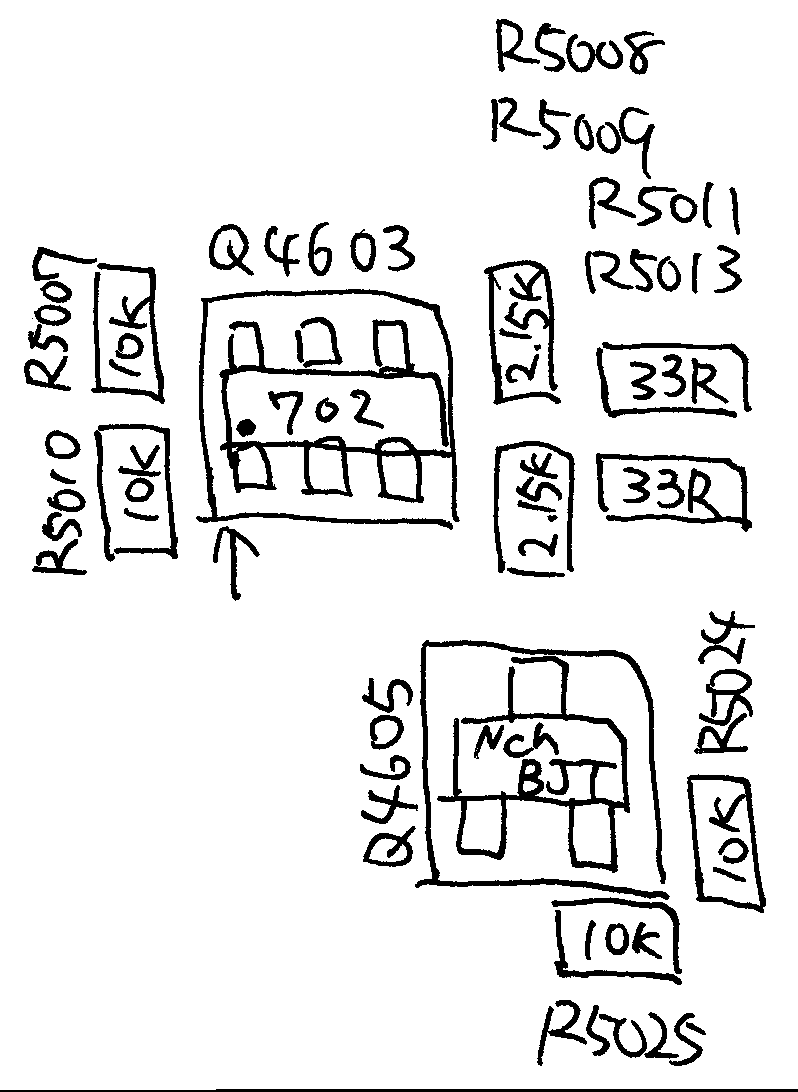 R5008
R5009
R5011
R5013
Q4603
R5007
10K
702
2.15K
33R
R5010
10K
2.15K
33R
Q4605
Nch
BJT
R5024
10K
10K
R5025